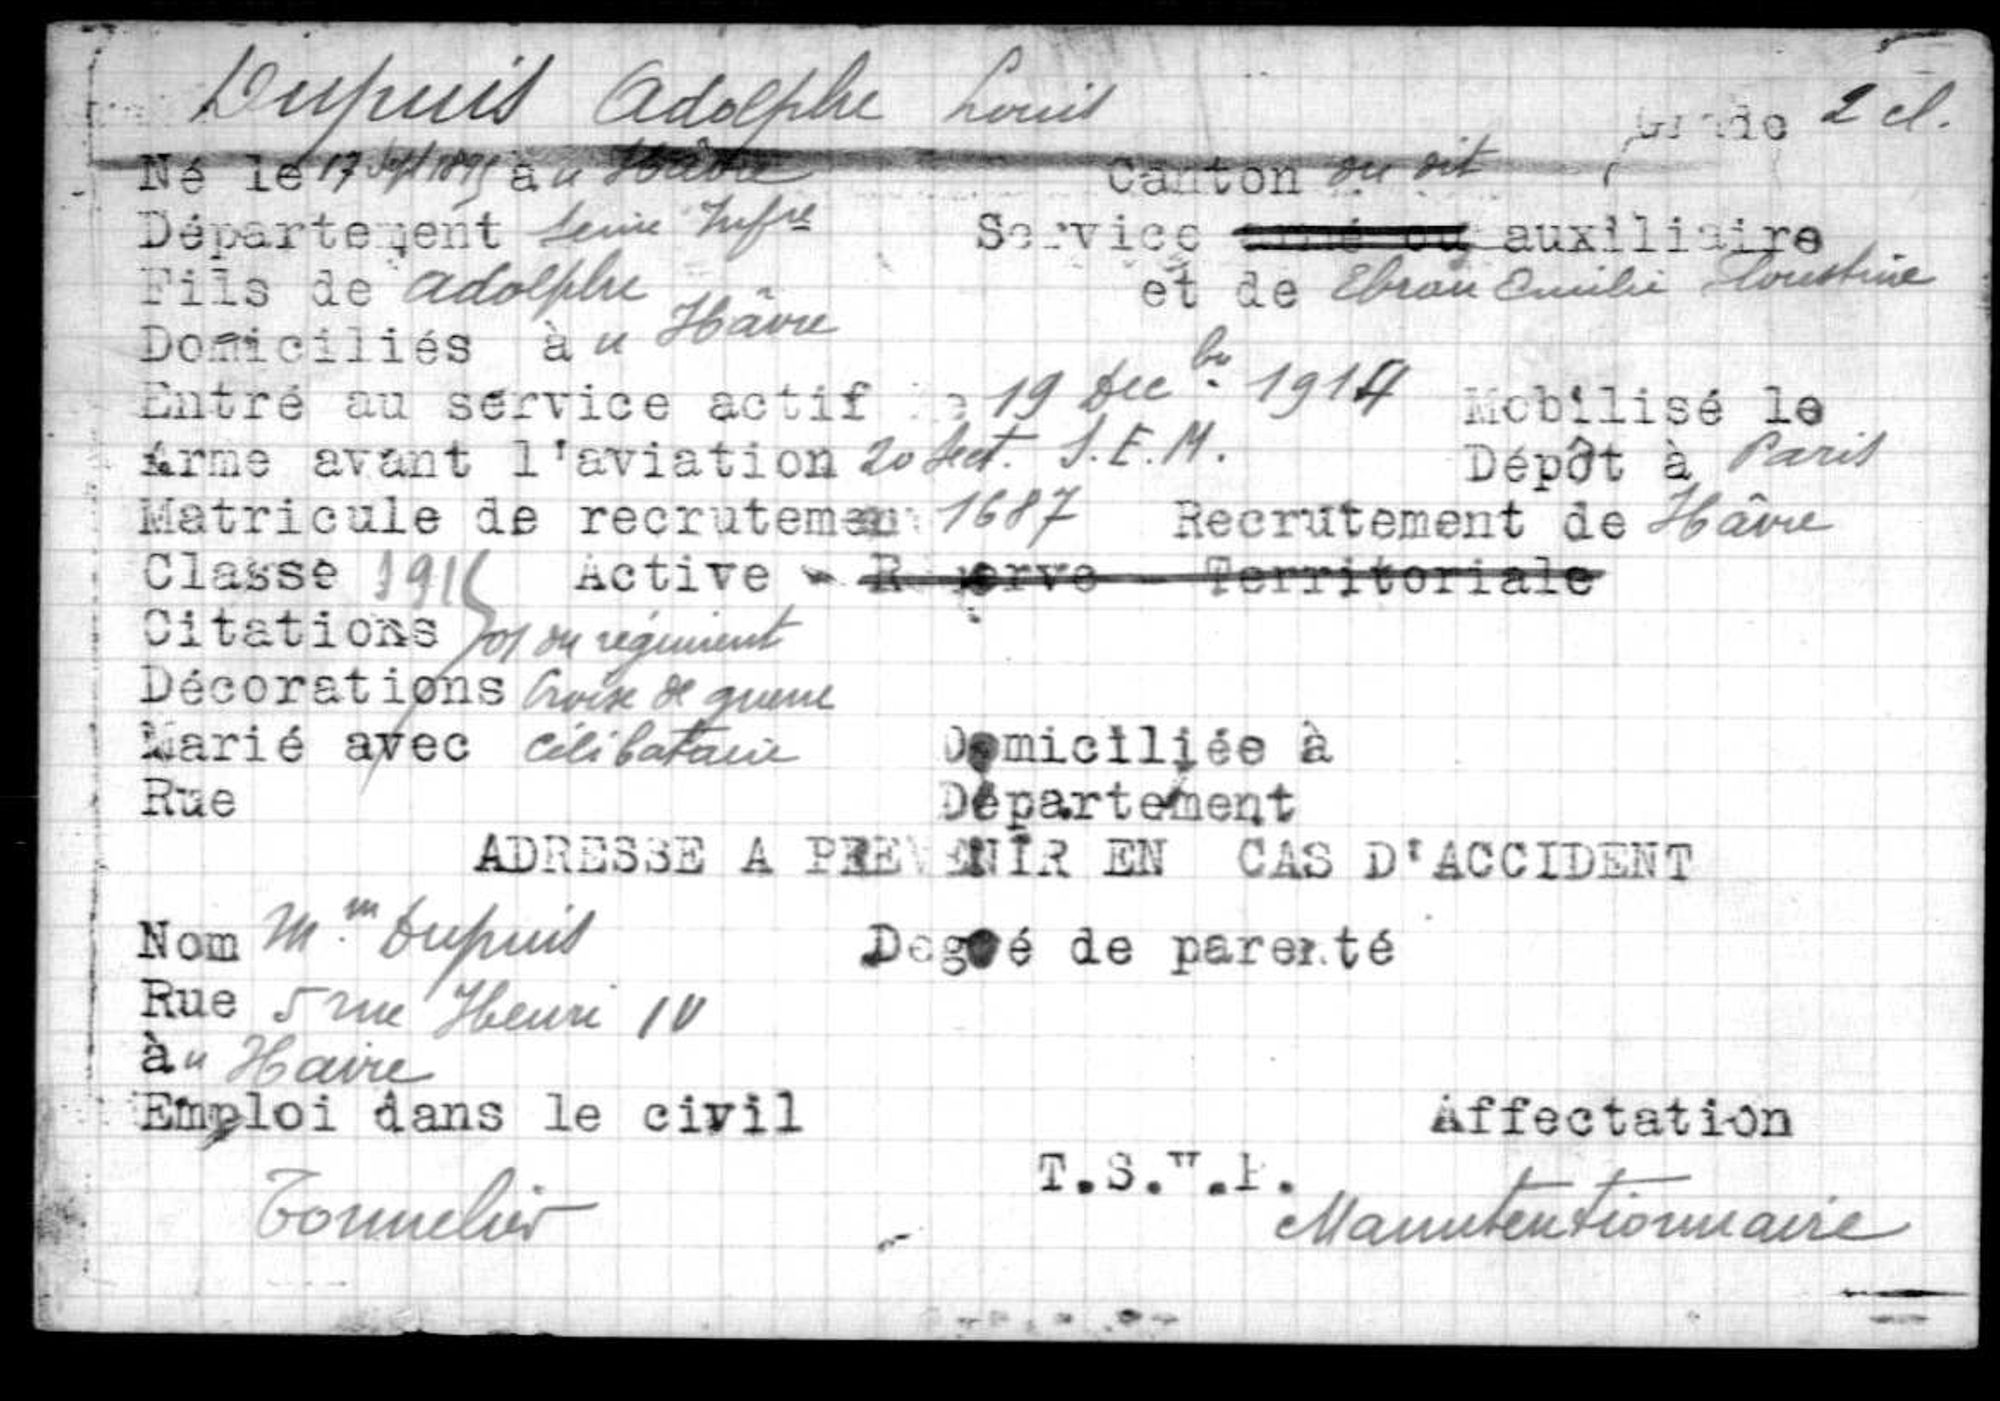 Dupuis Adolphe Louis
Grade 2 cl.
Né le 17 Sept 1895 à u Hâvre Canton du dit
Département Seine Infre Service armé ou auxiliaire
Fils de Adolphe et de Ebran Emilie
Domiciliés à u Hâvre
Entré au service actif le 19 Decbre 1914 Mobilisé le
Arme avant l'aviation 20 Sect. S.E.M. Dépôt à Paris
Matricule de recrutement 1687 Recrutement de Hâvre
Classe 1915 Active - Réserve - Territoriale
Citations du régiment
Décorations Croix de guerre
Marié avec célibataire Domiciliée à
Rue Département
ADRESSE A PREVENIR EN CAS D'ACCIDENT
Nom Mm Dupuis Degré de parenté
Rue 5 rue Henri IV
à u Havre
Emploi dans le civil Affectation
T.S.V.P.
Tonnelier Manutentionnaire